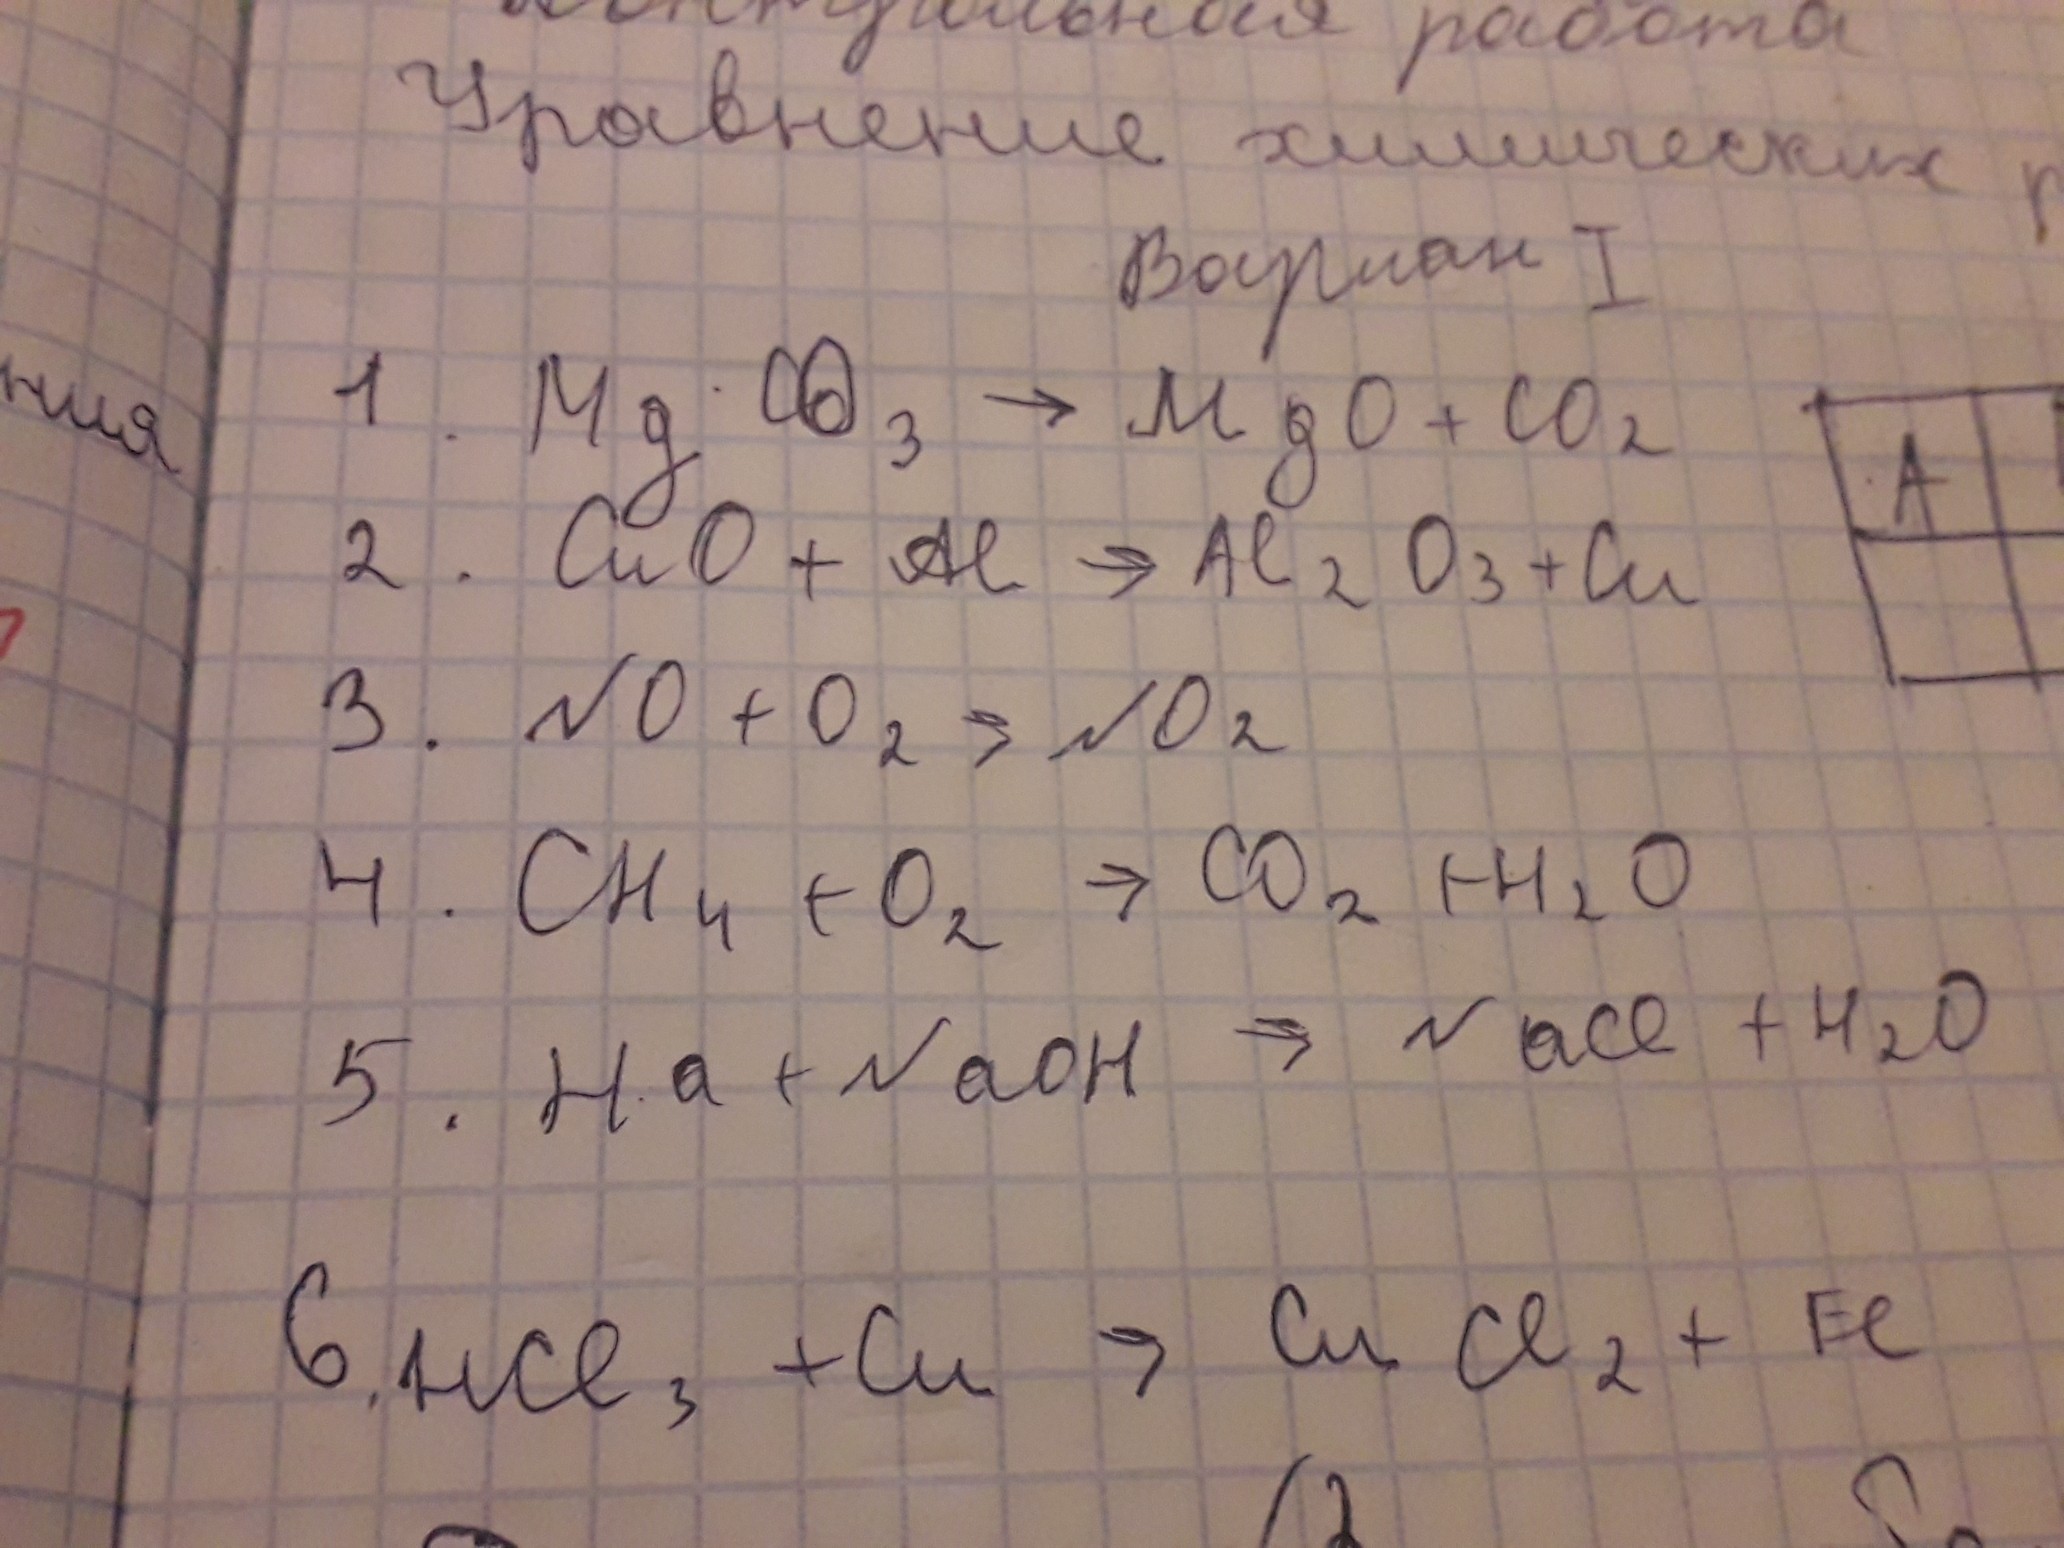 Контрольная работа
Уравнение химических р
Вариан I
1. MgCO3 → MgO + CO2
2. CuO + Al → Al2O3 + Cu
3. NO + O2 → NO2
4. CH4 + O2 → CO2 + H2O
5. Ha + NaOH → NaCl + H2O
6. HCl3 + Cu → CuCl2 + Fe
ния
A